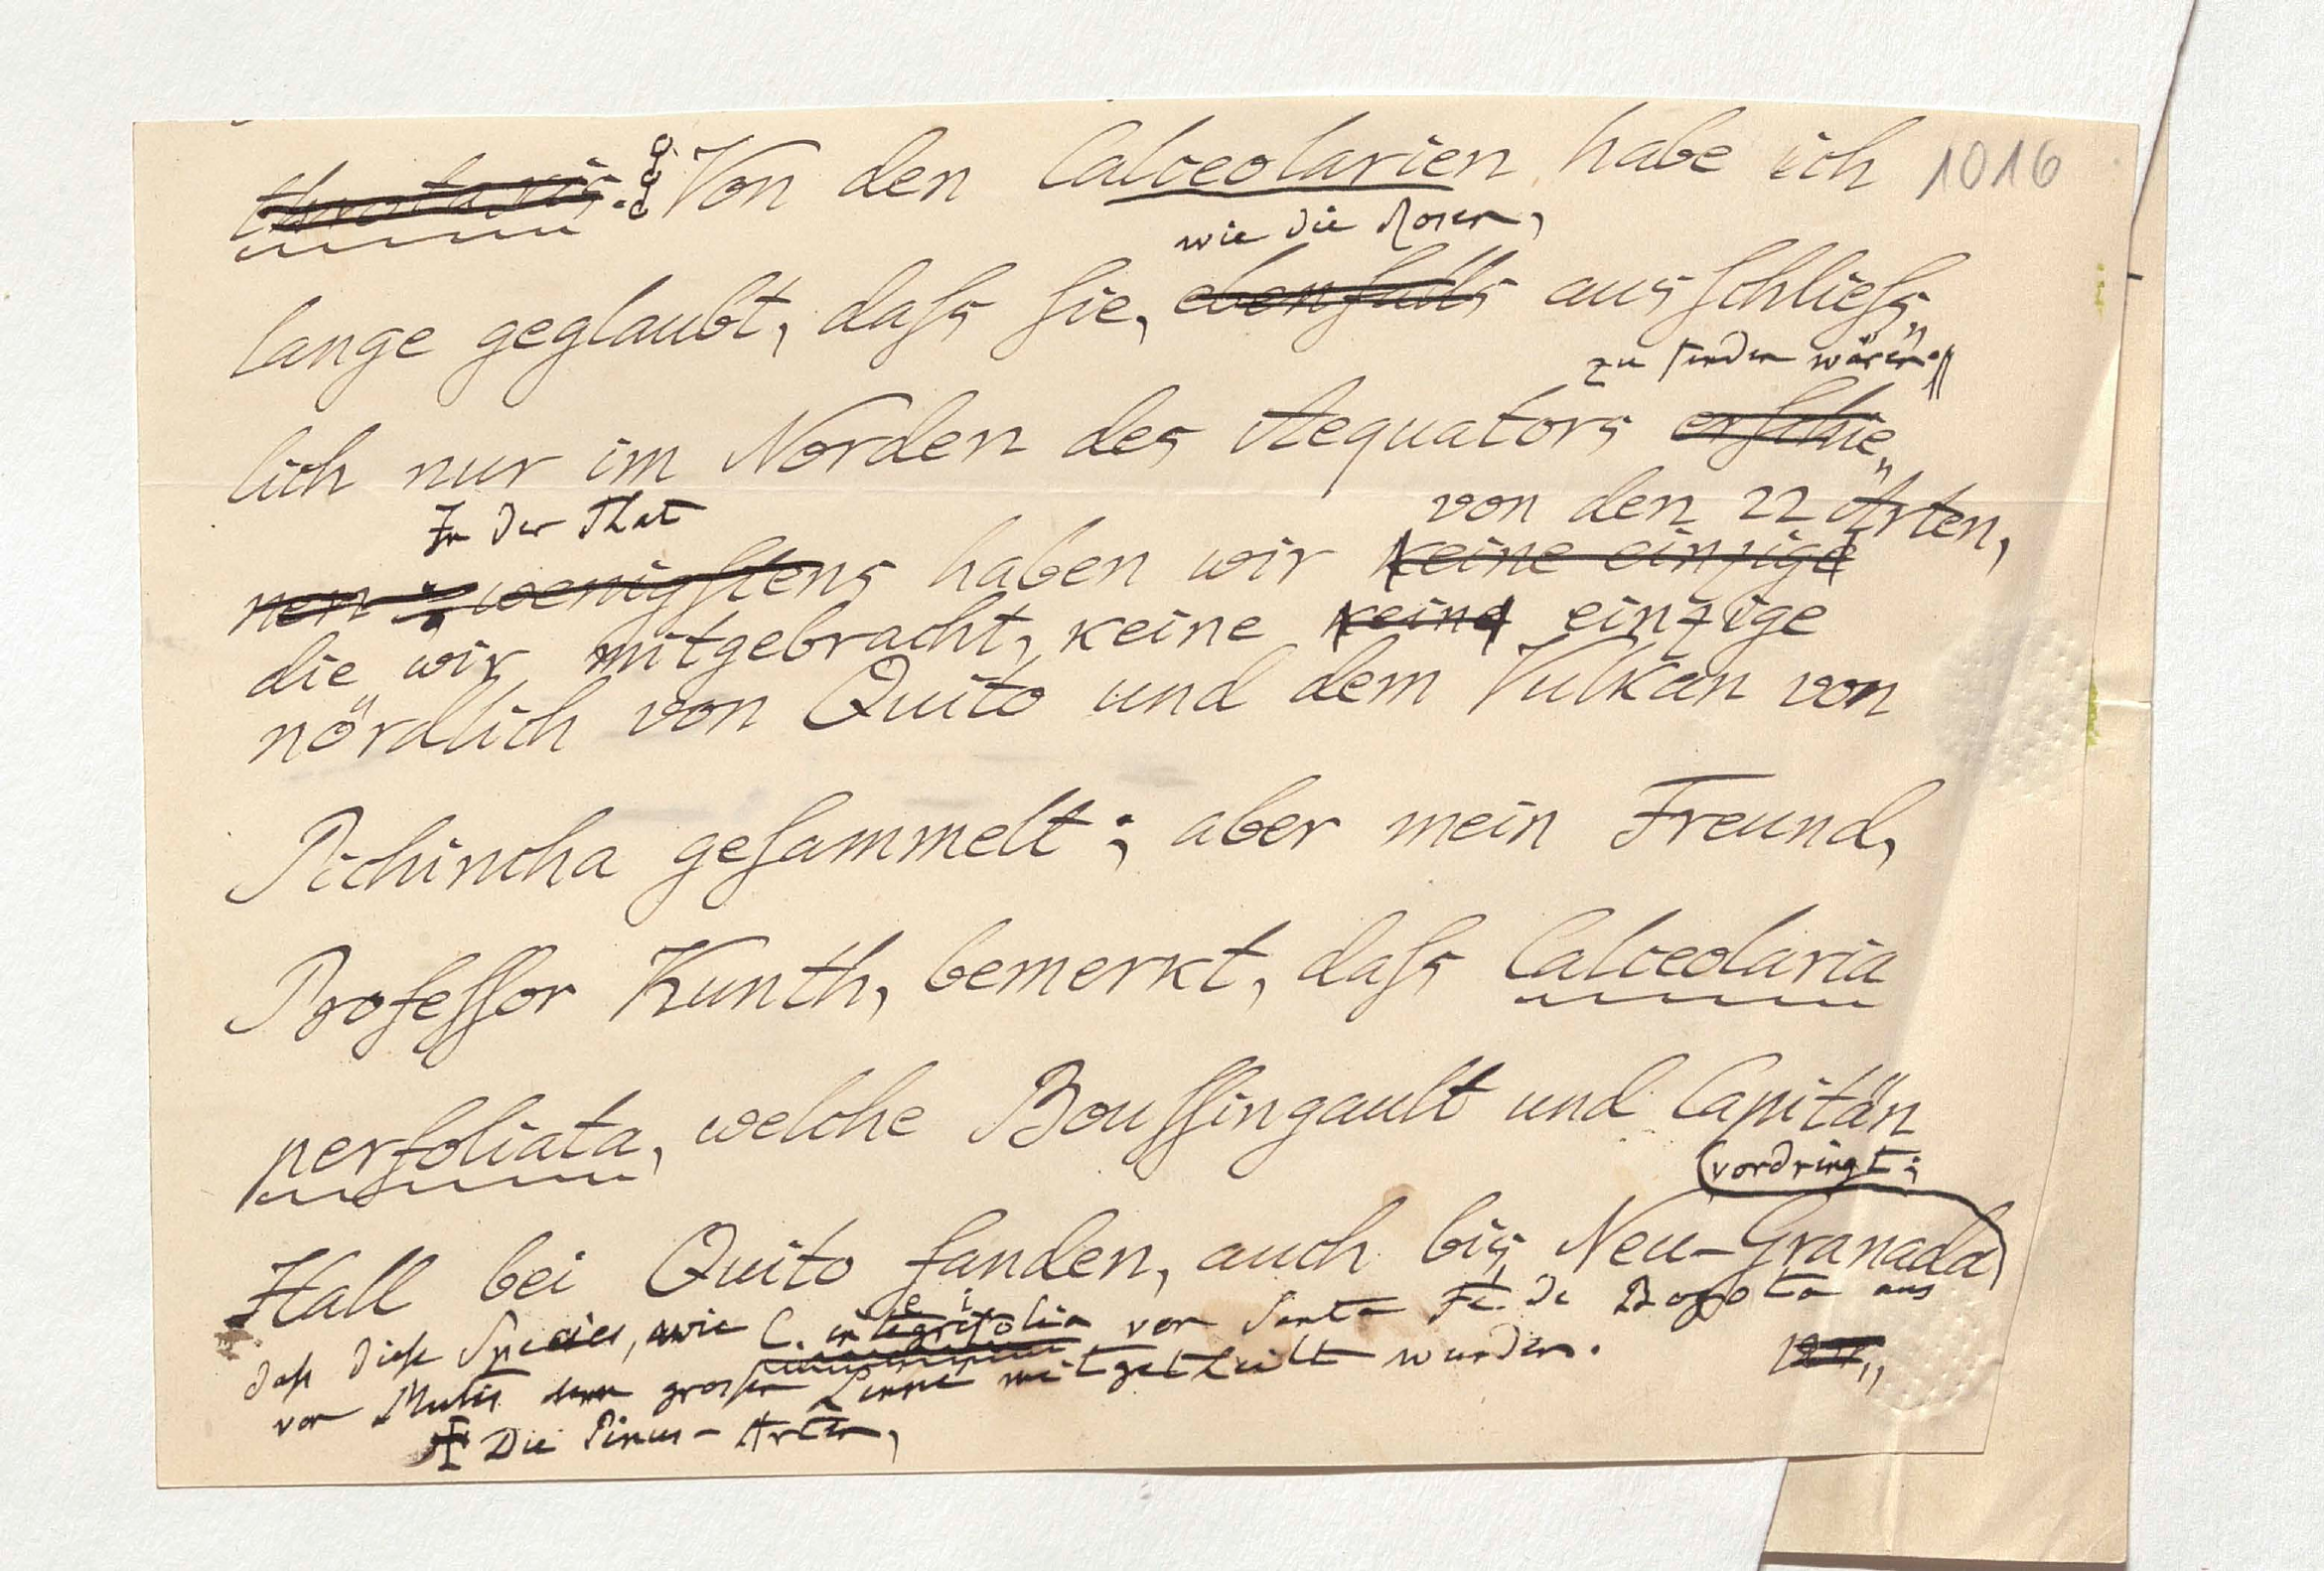 Von den Calceolarien habe ich 1016
wie die Rosen,
lange geglaubt, daſs ſie, ebenfalls ausſchlieſs„
zu finden wären.
lich nur im Norden des Aequators erſchie„
In der That von den 22 Arten,
nen; wenigſtens haben wir keine einzige
die wir mitgebracht, keine keine einzige
nördlich von Quito und dem Vulkan von
Pichincha geſammelt; aber mein Freund,
Profeſſor Kunth, bemerkt, daſs Calceolaria
perfoliata, welche Bouſſingault und Capitän
vordringt;
Hall bei Quito fanden, auch bis Neu-Granada
daſs dieſe Species, wie C. integrifolia von Santa Fé de Bogota aus
von Mutis dem groſsen Linné mitgetheilt wurden.
Die Pinus-Arten,